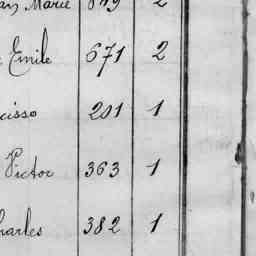 Marie 849 2
Emile 671 2
cisso 201 1
Victor 363 1
harles 382 1